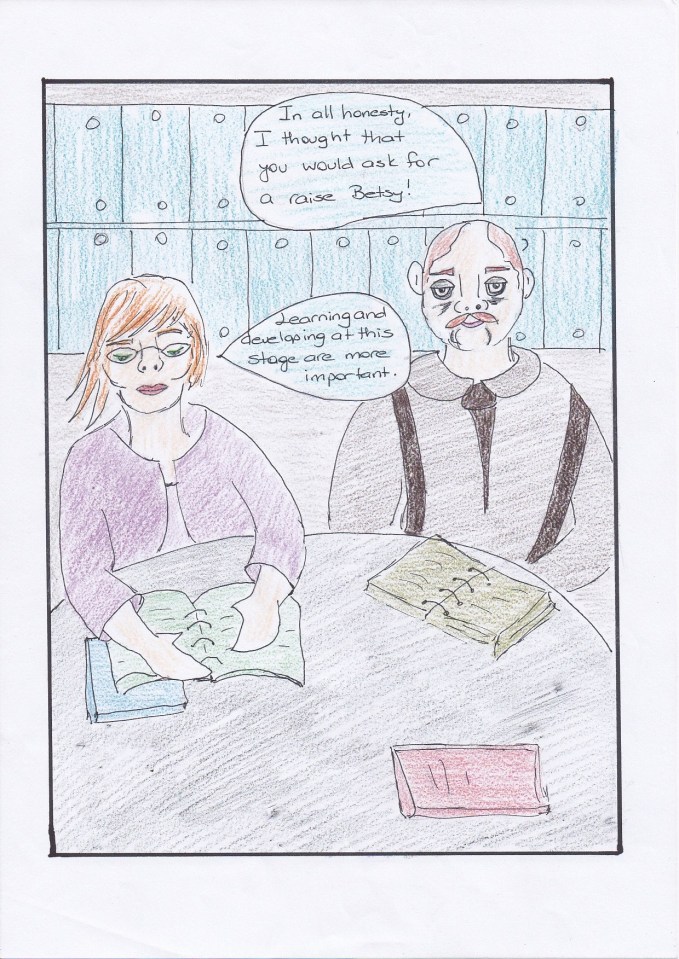 In all honesty,
I thought that
you would ask for
a raise Betsy!
Learning and
developing at this
stage are more
important.